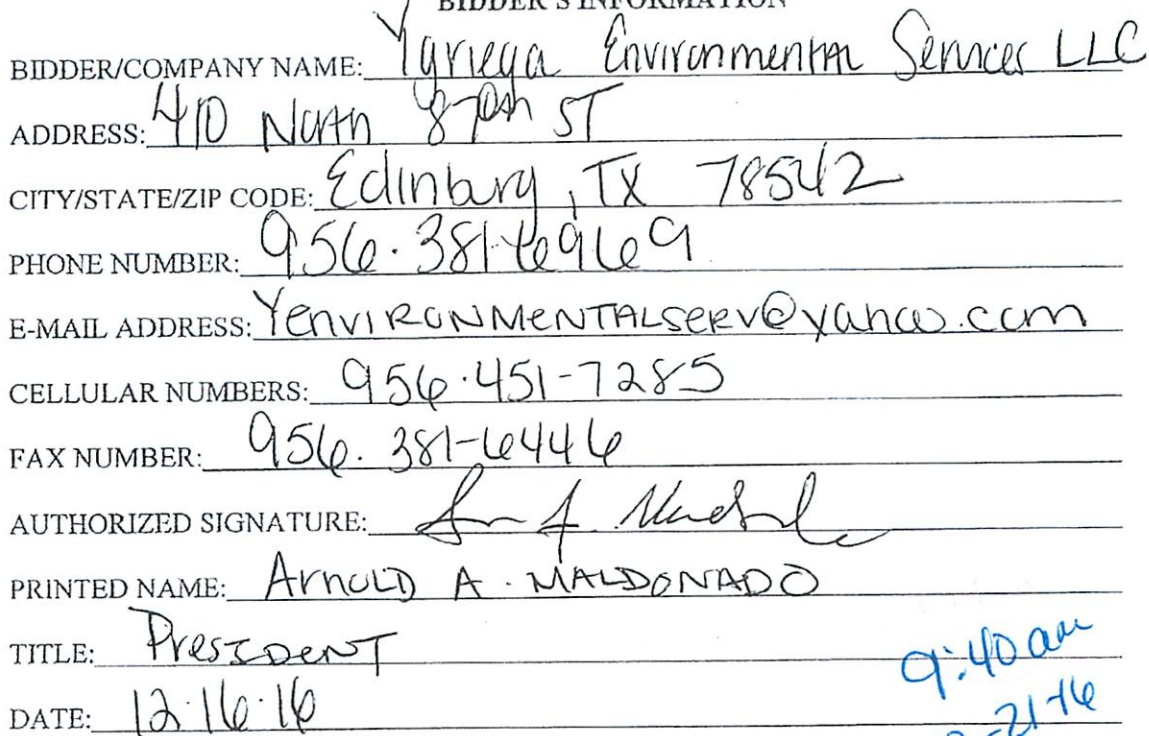 BIDDER'S INFORMATION
BIDDER/COMPANY NAME: Ygriega Environmental Services LLC
ADDRESS: 410 North 87th ST
CITY/STATE/ZIP CODE: Edinburg, TX 78542
PHONE NUMBER: 956.381-6969
E-MAIL ADDRESS: YENVIRONMENTALSERV@yahoo.com
CELLULAR NUMBERS: 956.451-7285
FAX NUMBER: 956.381-6446
AUTHORIZED SIGNATURE:
PRINTED NAME: ArnolD A. MALDONADO
TITLE: PresIDenT
DATE: 12.16.16
9:40 am
-21-16